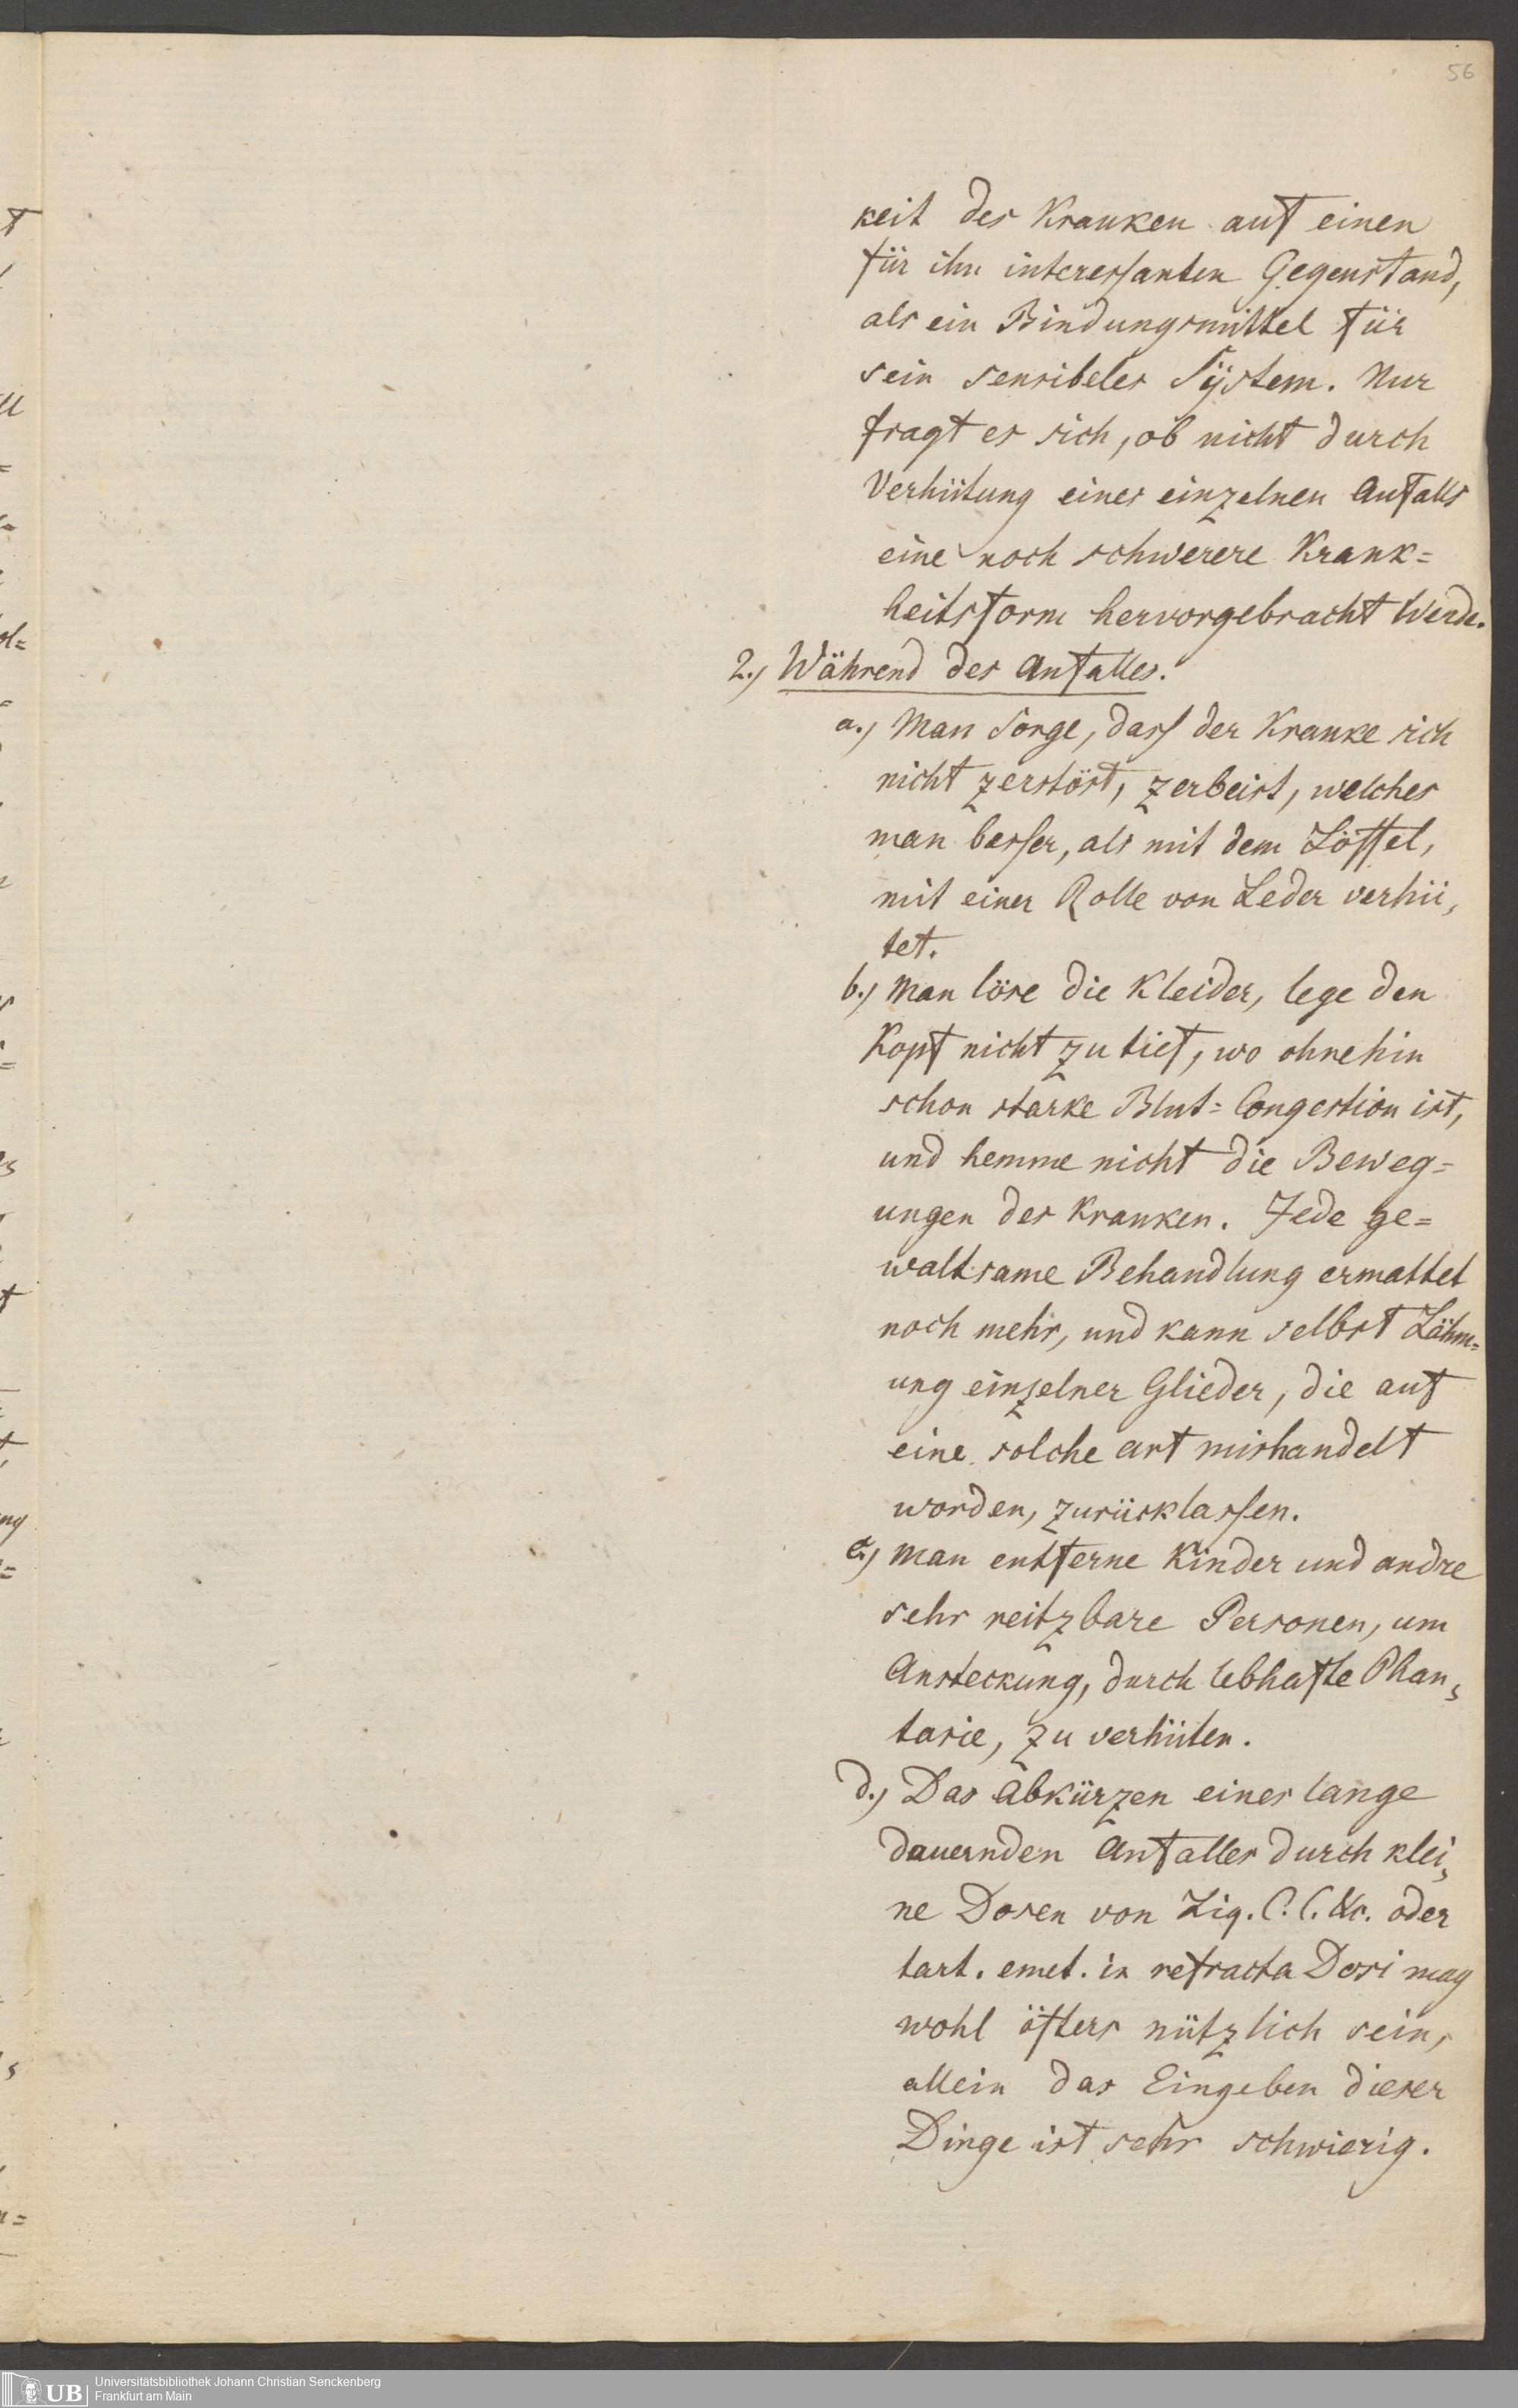 56
keit des Kranken auf einen
für ihn interessanten Gegenstand,
als ein Bindungsmittel für
sein sensibeles Sÿstem. Nur
fragt es sich, ob nicht durch
Verhütung eines einzelnen Anfalls
eine noch schwerere Krank=
heitsform hervorgebracht werde.
2.) Während des Anfalles.
a.) Man Sorge, dass der Kranke sich
nicht zerstöst, zerbeist, welches
man besser, als mit dem Löffel,
mit einer Rolle von Leder verhü,
tet.
b.) Man löse die Kleider, lege den
Kopf nicht zu tief, wo ohnehin
schon starke Blut=Congestion ist,
und hemme nicht die Beweg=
ungen des Kranken. Jede ge=
waltsame Behandlung ermattet
noch mehr, und kann selbst Lähm=
ung einzelner Glieder, die auf
eine solche Art mishandelt
worden, zurücklassen.
c.) Man entferne Kinder und andre
sehr reitzbare Personen, um
Ansteckung, durch lebhafte Phan,
tasie, zu verhüten.
d.) Das Abkürzen eines lange
dauernden Anfalles durch klei,
ne Dosen von Liq. C. C. &c. oder
tart. emet. in refracta Dosi mag
wohl öfters nützlich sein,
allein das Eingeben dieser
Dinge ist sehr schwierig.
UB Universitätsbibliothek Johann Christian Senckenberg
Frankfurt am Main